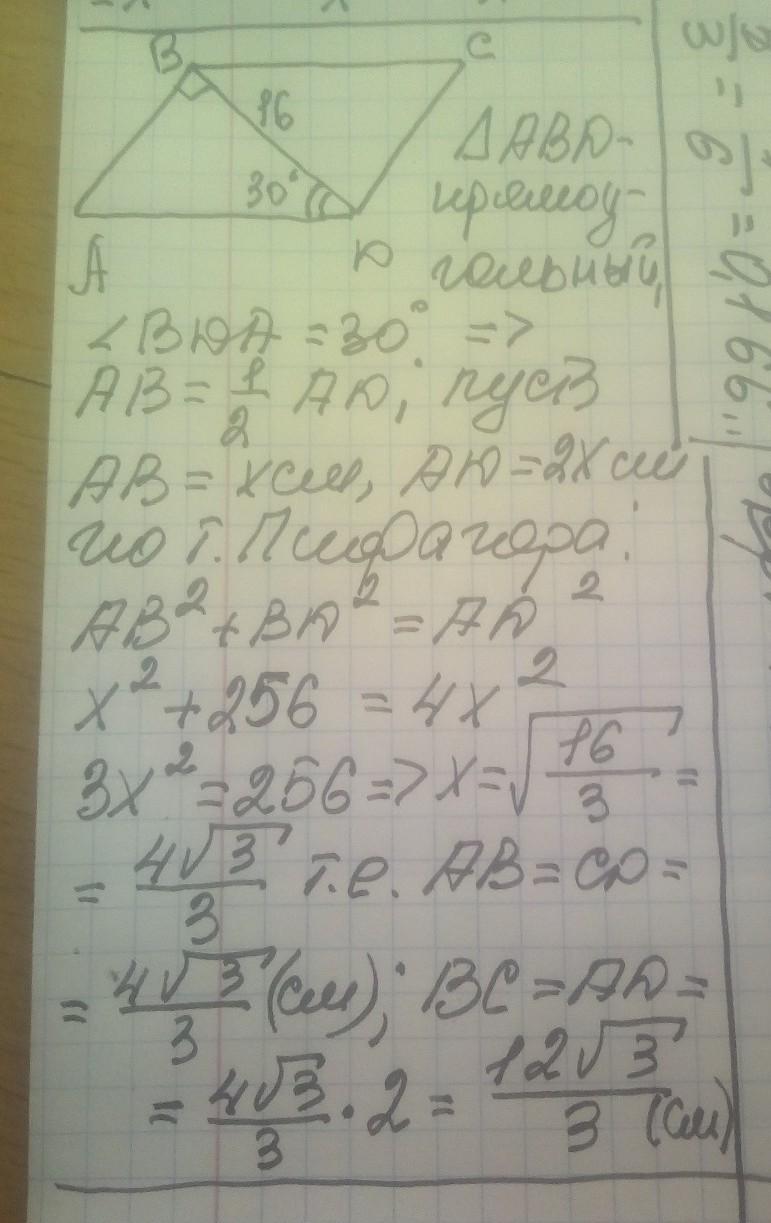 B C
16
30°
A D
ΔABD-
прямоу-
гольный,
∠BDA = 30° =>
AB = 1/2 AD; пусть
AB = x см, AD = 2x см
по т. Пифагора:
AB² + BD² = AD²
x² + 256 = 4x²
3x² = 256 => x = √(16/3) =
= 4√3/3 т.е. AB = CD =
= 4√3/3 (см); BC = AD =
= 4√3/3 · 2 = 12√3/3 (см)